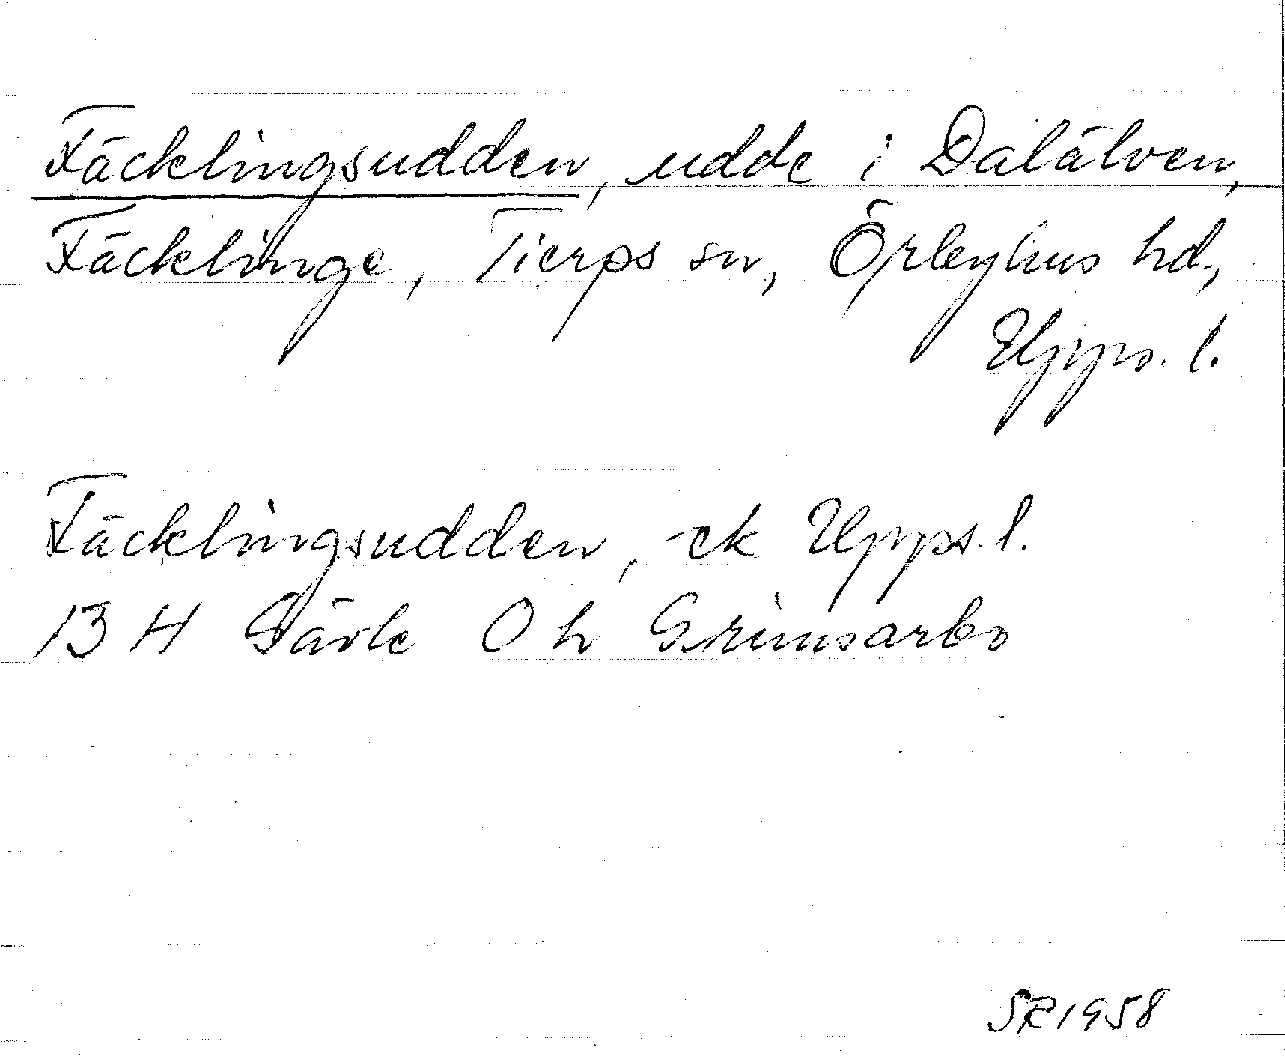 Fäcklingsudden, udde i Dalälven,
Fäcklinge, Tierps sn, Örbyhus hd,
Upps. l.
Fäcklingsudden, -ek Upps. l.
13 H Gävle 0 h Grimsarbo
SR 1958